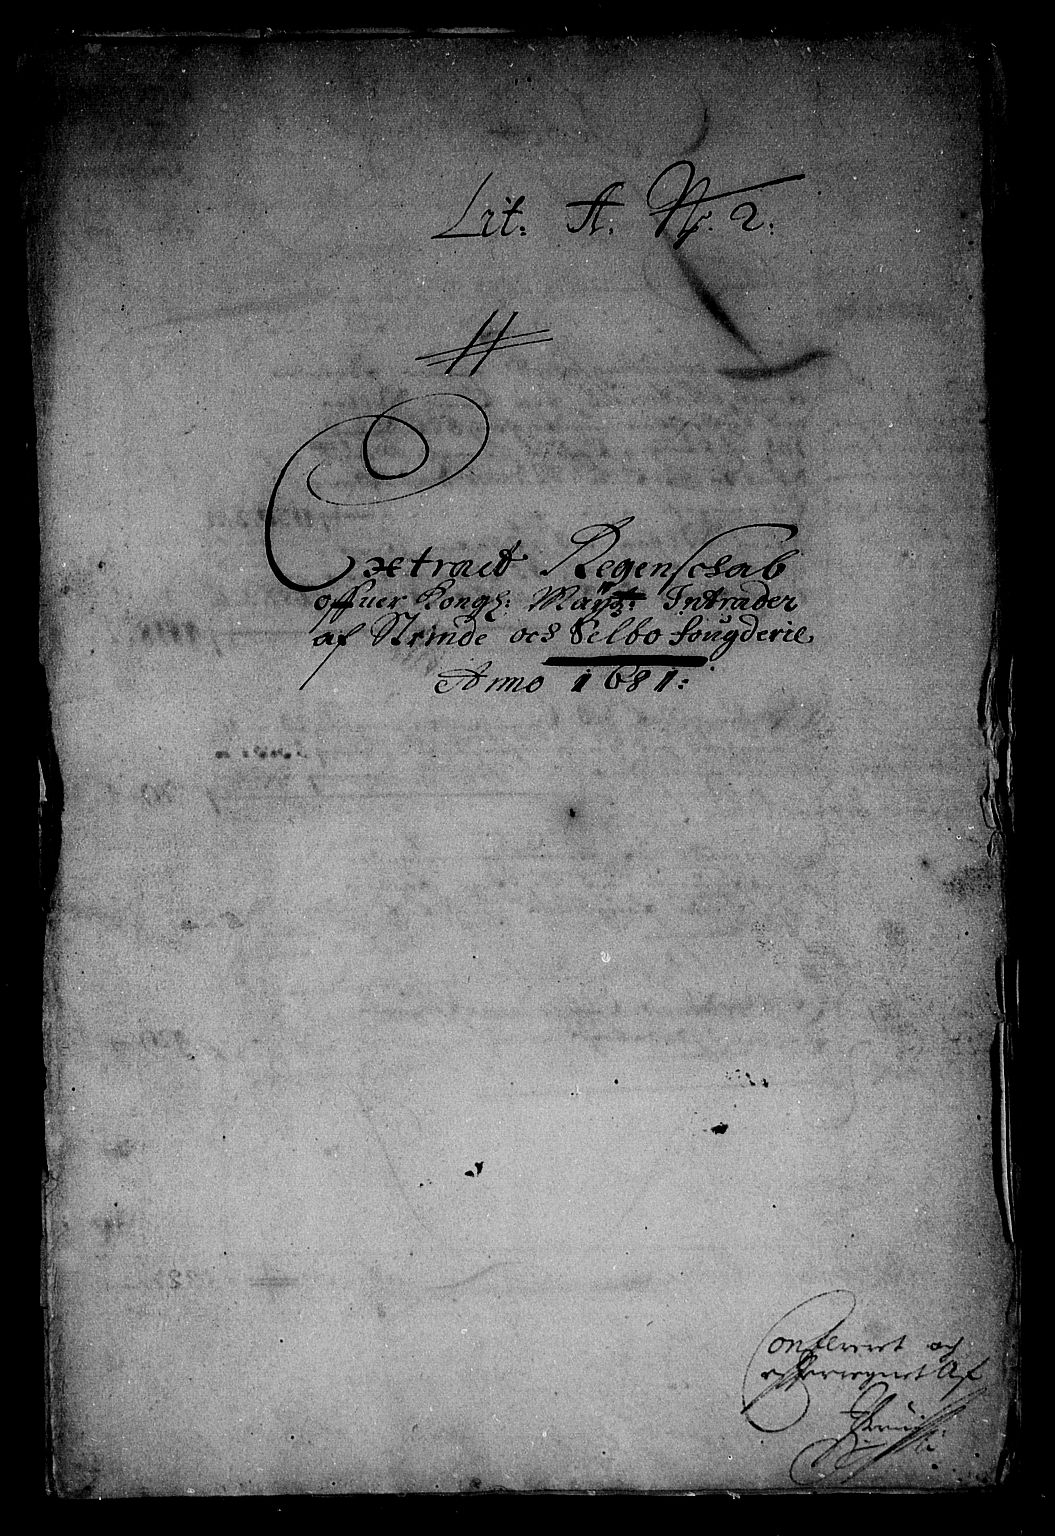 Lit: A. No. 2.
Extract Regenschab
offuer Kongl: Maÿtz: Intrader
af Strinde och Selbo fougderie,
Anno 1681:
Confereret och
efterregnet Af